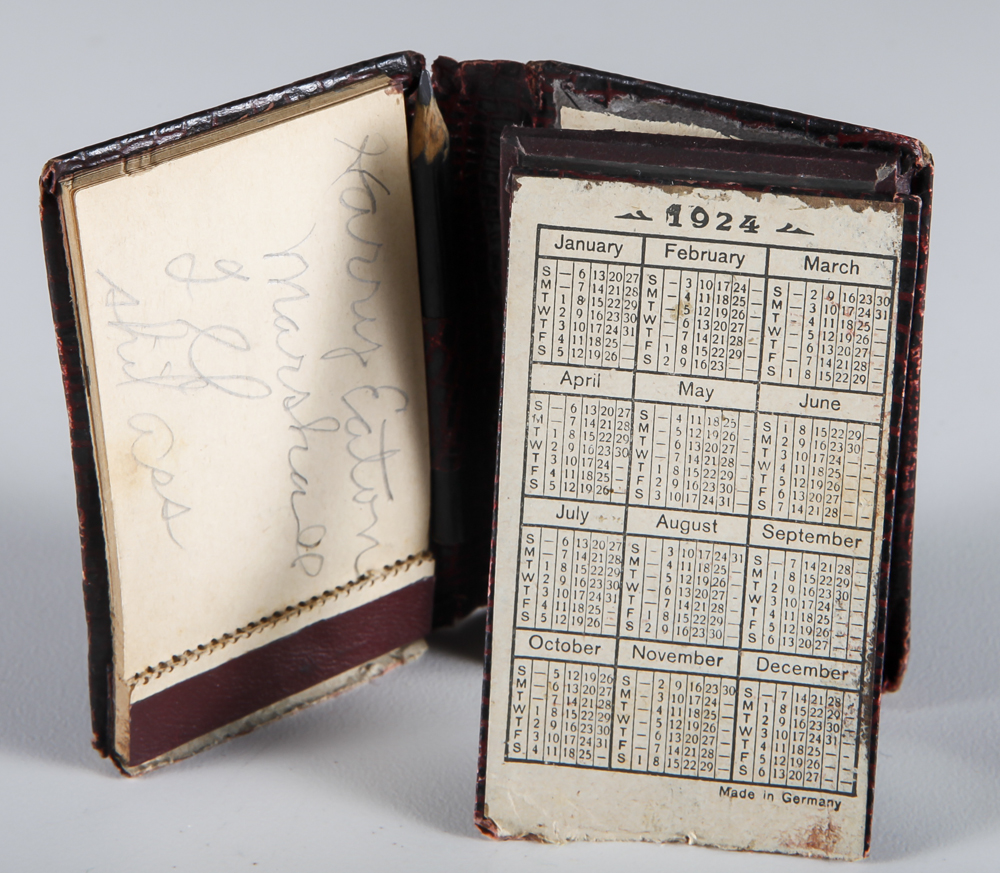 Harry Eaton
Marshall
ass
1924
January
S — 6 13 20 27
M — 7 14 21 28
T 1 8 15 22 29
W 2 9 16 23 30
T 3 10 17 24 31
F 4 11 18 25 —
S 5 12 19 26 —
February
S — 3 10 17 24 —
M — 4 11 18 25 —
T — 5 12 19 26 —
W — 6 13 20 27 —
T — 7 14 21 28 —
F 1 8 15 22 29 —
S 2 9 16 23 — —
March
S — 2 9 16 23 30
M — 3 10 17 24 31
T — 4 11 18 25 —
W — 5 12 19 26 —
T — 6 13 20 27 —
F — 7 14 21 28 —
S 1 8 15 22 29 —
April
S — 6 13 20 27
M — 7 14 21 28
T 1 8 15 22 29
W 2 9 16 23 30
T 3 10 17 24 —
F 4 11 18 25 —
S 5 12 19 26 —
May
S — 4 11 18 25 —
M — 5 12 19 26 —
T — 6 13 20 27 —
W — 7 14 21 28 —
T 1 8 15 22 29 —
F 2 9 16 23 30 —
S 3 10 17 24 31 —
June
S 1 8 15 22 29 —
M 2 9 16 23 30 —
T 3 10 17 24 — —
W 4 11 18 25 — —
T 5 12 19 26 — —
F 6 13 20 27 — —
S 7 14 21 28 — —
July
S — 6 13 20 27
M — 7 14 21 28
T 1 8 15 22 29
W 2 9 16 23 30
T 3 10 17 24 31
F 4 11 18 25 —
S 5 12 19 26 —
August
S — 3 10 17 24 31
M — 4 11 18 25 —
T — 5 12 19 26 —
W — 6 13 20 27 —
T — 7 14 21 28 —
F 1 8 15 22 29 —
S 2 9 16 23 30 —
September
S — 7 14 21 28 —
M 1 8 15 22 29 —
T 2 9 16 23 30 —
W 3 10 17 24 — —
T 4 11 18 25 — —
F 5 12 19 26 — —
S 6 13 20 27 — —
October
S — 5 12 19 26
M — 6 13 20 27
T — 7 14 21 28
W 1 8 15 22 29
T 2 9 16 23 30
F 3 10 17 24 31
S 4 11 18 25 —
November
S — 2 9 16 23 30
M — 3 10 17 24 —
T — 4 11 18 25 —
W — 5 12 19 26 —
T — 6 13 20 27 —
F — 7 14 21 28 —
S 1 8 15 22 29 —
December
S — 7 14 21 28 —
M 1 8 15 22 29 —
T 2 9 16 23 30 —
W 3 10 17 24 31 —
T 4 11 18 25 — —
F 5 12 19 26 — —
S 6 13 20 27 — —
Made in Germany